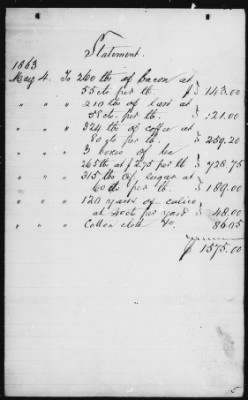 Statement.
1863
May 4. To 260 lbs of Bacon at
55 cts per lb. $ 143.00
" " " 210 lbs of lard at
58 cts. per lb. 121.00
" " " 324 lbs of coffee at
80 cts per lb. $ 259.20
" " " 3 boxes of tea
265 lb at $2.75 per lb $ 728.75
" " " 315 lbs of sugar at
60 cts per lb. $ 189.00
" " " 120 yards of calico
at 40 cts per yard $ 48.00
" " " Cotton cloth &c. 86.05
$ 1575.00